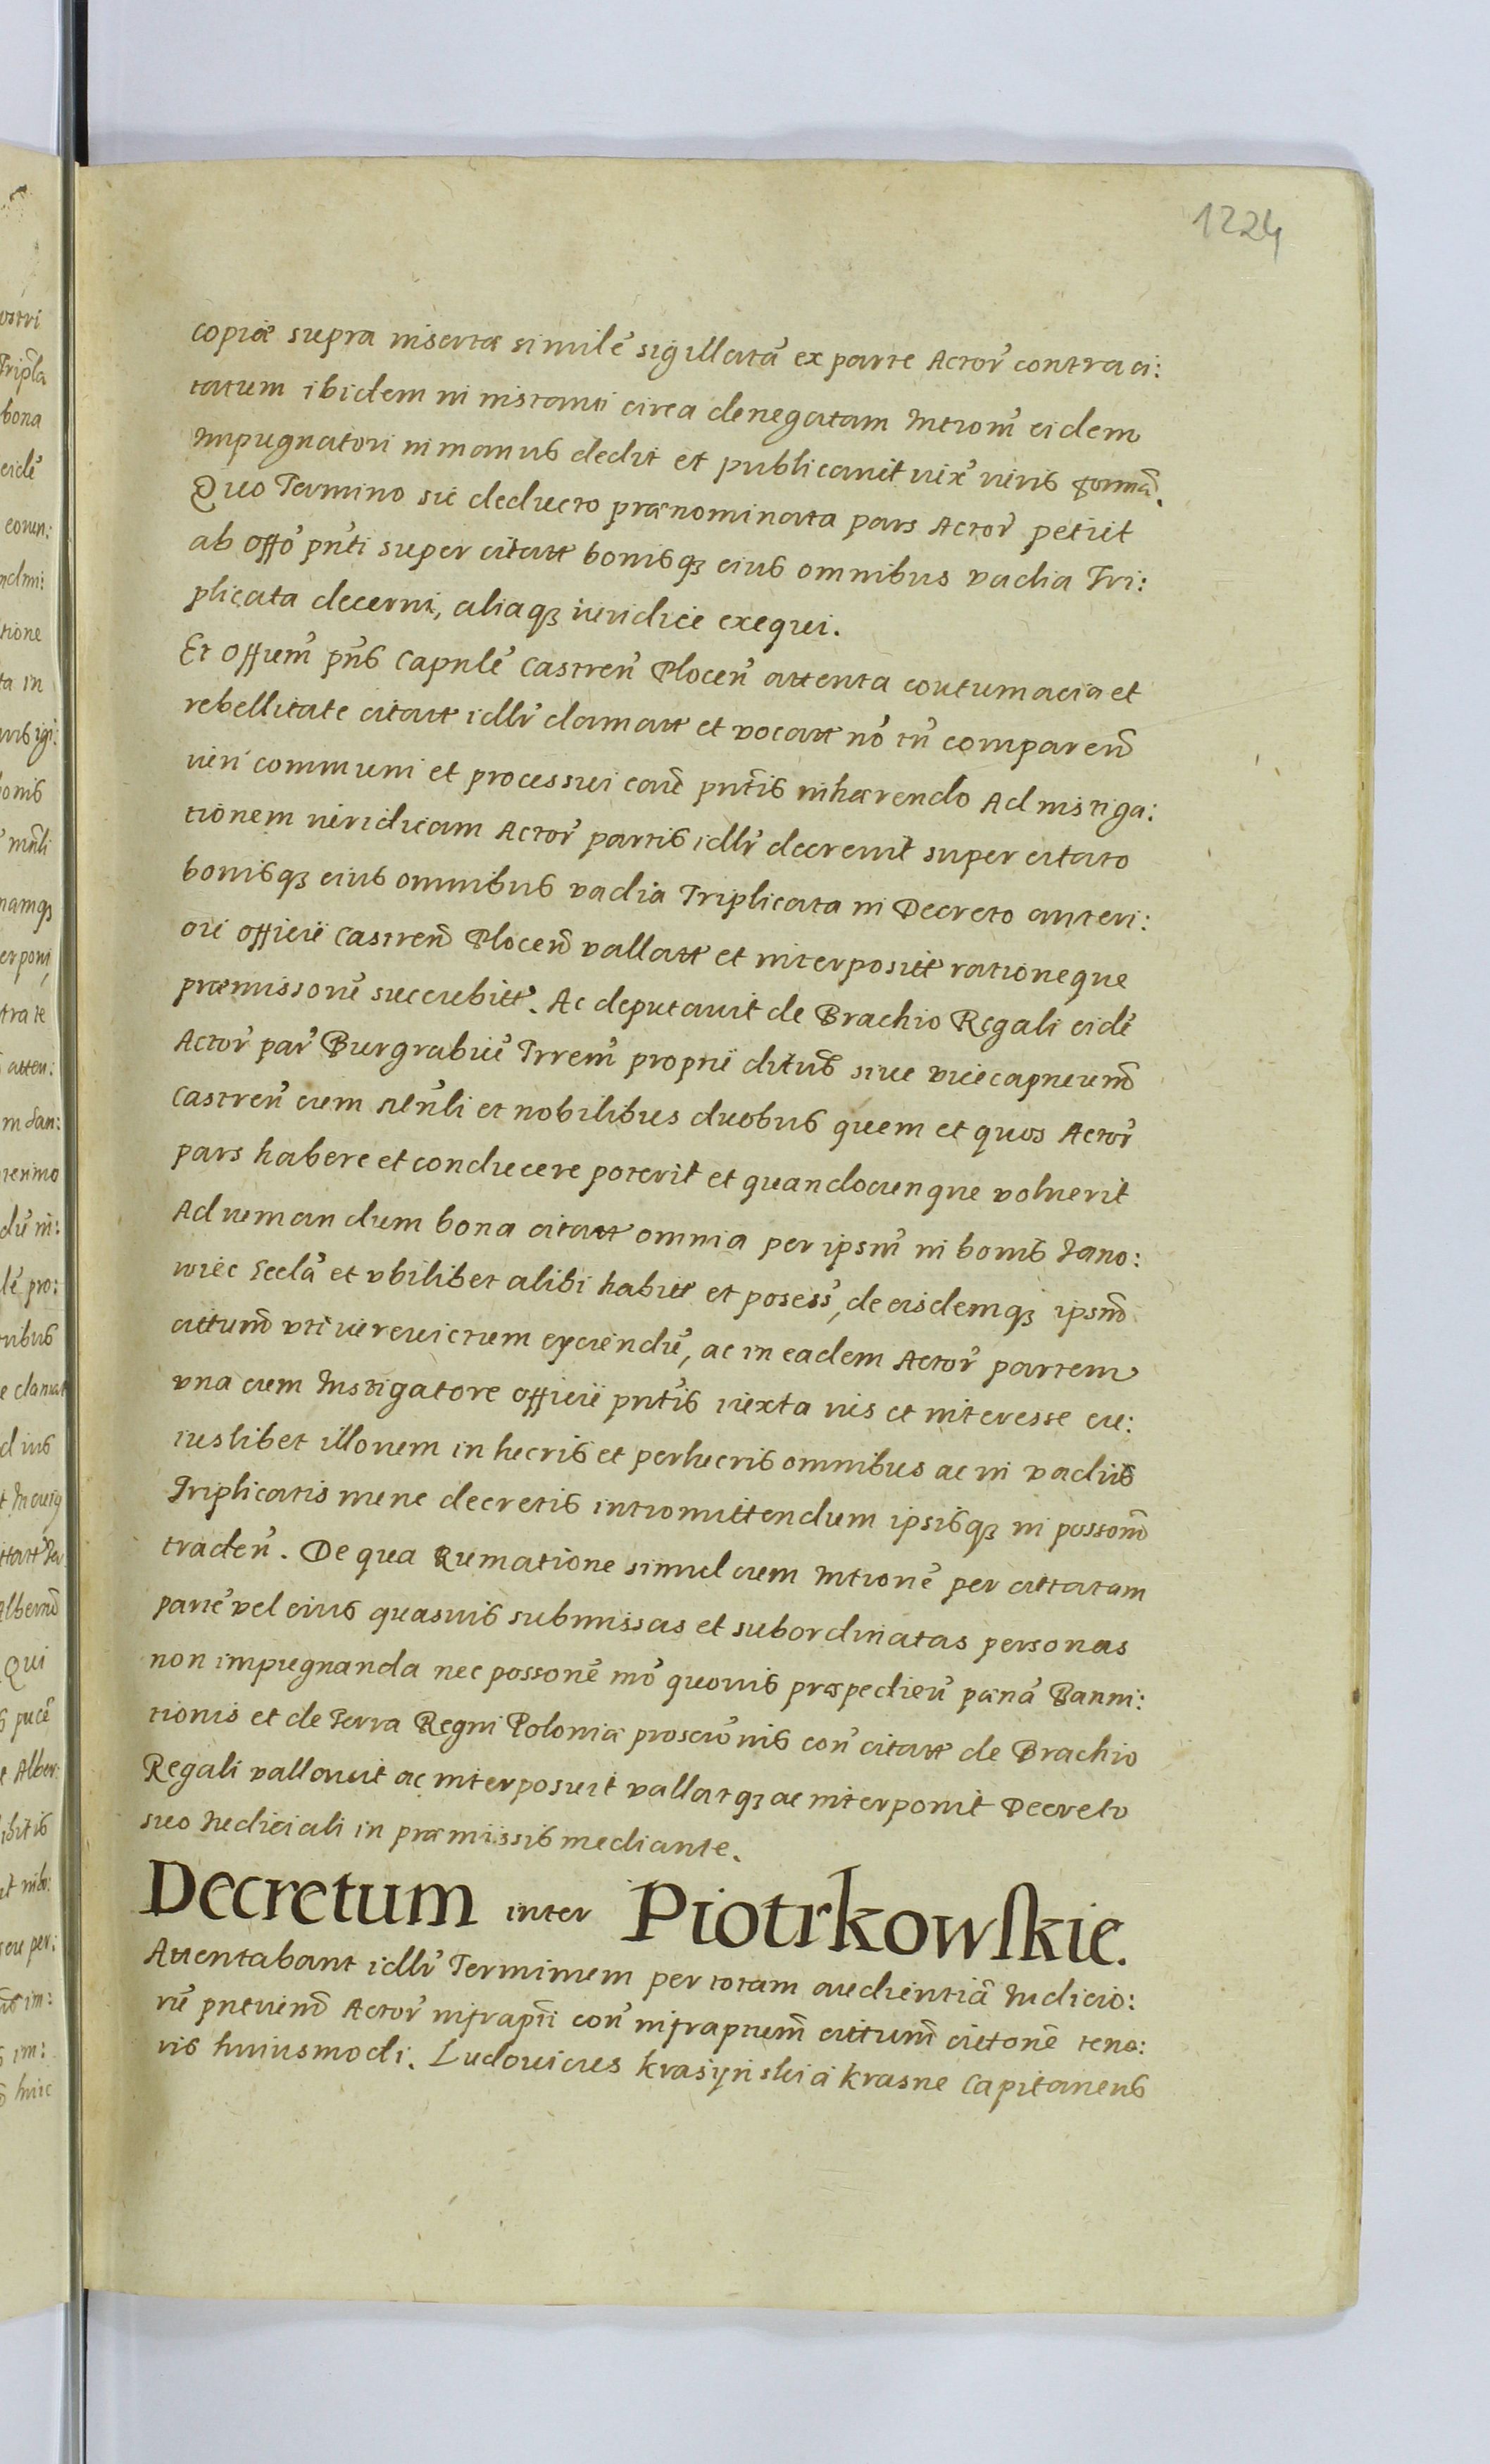 1224
copiæ supra insertæ similẽ sigillatã ex parte Actor̃ contra ci:
tatum ibidem in instanti circa denegatam Introm̃ eidem
Impugnatori in manus dedit et publicauit iux̃ iuris formã.
Quo Termino sic deducto prænominata pars Actor̃ petiit
ab offo͂ pñti super citatt bonisq3 eius omnibus vadia Tri:
plicata decerni, aliaq3 iuridice exequi.
Et Offium̃ pñs Capnlẽ Castreñ Ploceñ attenta contumacia et
rebellitate citatt idlr̃ clamatt et vocatt nõ tñ compareñ
iuri communi et processui caus̃ pñtis inhærendo Ad instiga:
tionem iuridicam Actor̃ partis idlr̃ decreuit super citato
bonisq3 eius omnibus vadia Triplicata in Decreto anteri:
ori officii Castreñ Ploceñ vallatt et interpositt rationeque
præmissorũ succubitt. Ac deputauit de Brachio Regali eidẽ
Actor̃ par̃ Burgrabiũ Trrem̃ proprie dictũ siue vicecapneum̃
Castreñ cum mñli et nobilibus duobus quem et quos Actor̃
pars habere et conducere poterit et quandocunque voluerit
Ad rumandum bona citatt omnia per ipsm̃ in bonis Jano:
wiec Seclã et vbilibet alibi habitt et possess̃, de eisdemq3 ipsm̃
cittum̃ vti iure uictum eyciendũ, ac in eadem Actor̃ partem
vna cum Instigatore officii pñtis iuxta ius et interesse cu:
iuslibet illorum in lucris et perlucris omnibus ac in vadiis
Triplicatis nunc decretis intromittendum ipsisq3 in possom̃
tradeñ. De qua Rumatione simul cum Intronẽ per citatam
partẽ vel eius quasuis submissas et subordinatas personas
non impugnanda nec possonẽ mõ quouis præpedieñ pænã Banni:
tionis et de Terra Regni Poloniæ proscr̃onis coñ citatt de Brachio
Regali vallauit ac interposuit vallatq3 ac interponit Decreto
suo Iudiciali in præmissis mediante.
Decretum inter Piotrkowskie.
Attentabant idlr̃ Terminum per totam audientiã Iudicio:
rũ pñtium̃ Actor̃ infrapti coñ infraptum̃ cittum̃ cittonẽ teno:
ris huiusmodi. Ludouicus Krasiynski a Krasne Capitaneus